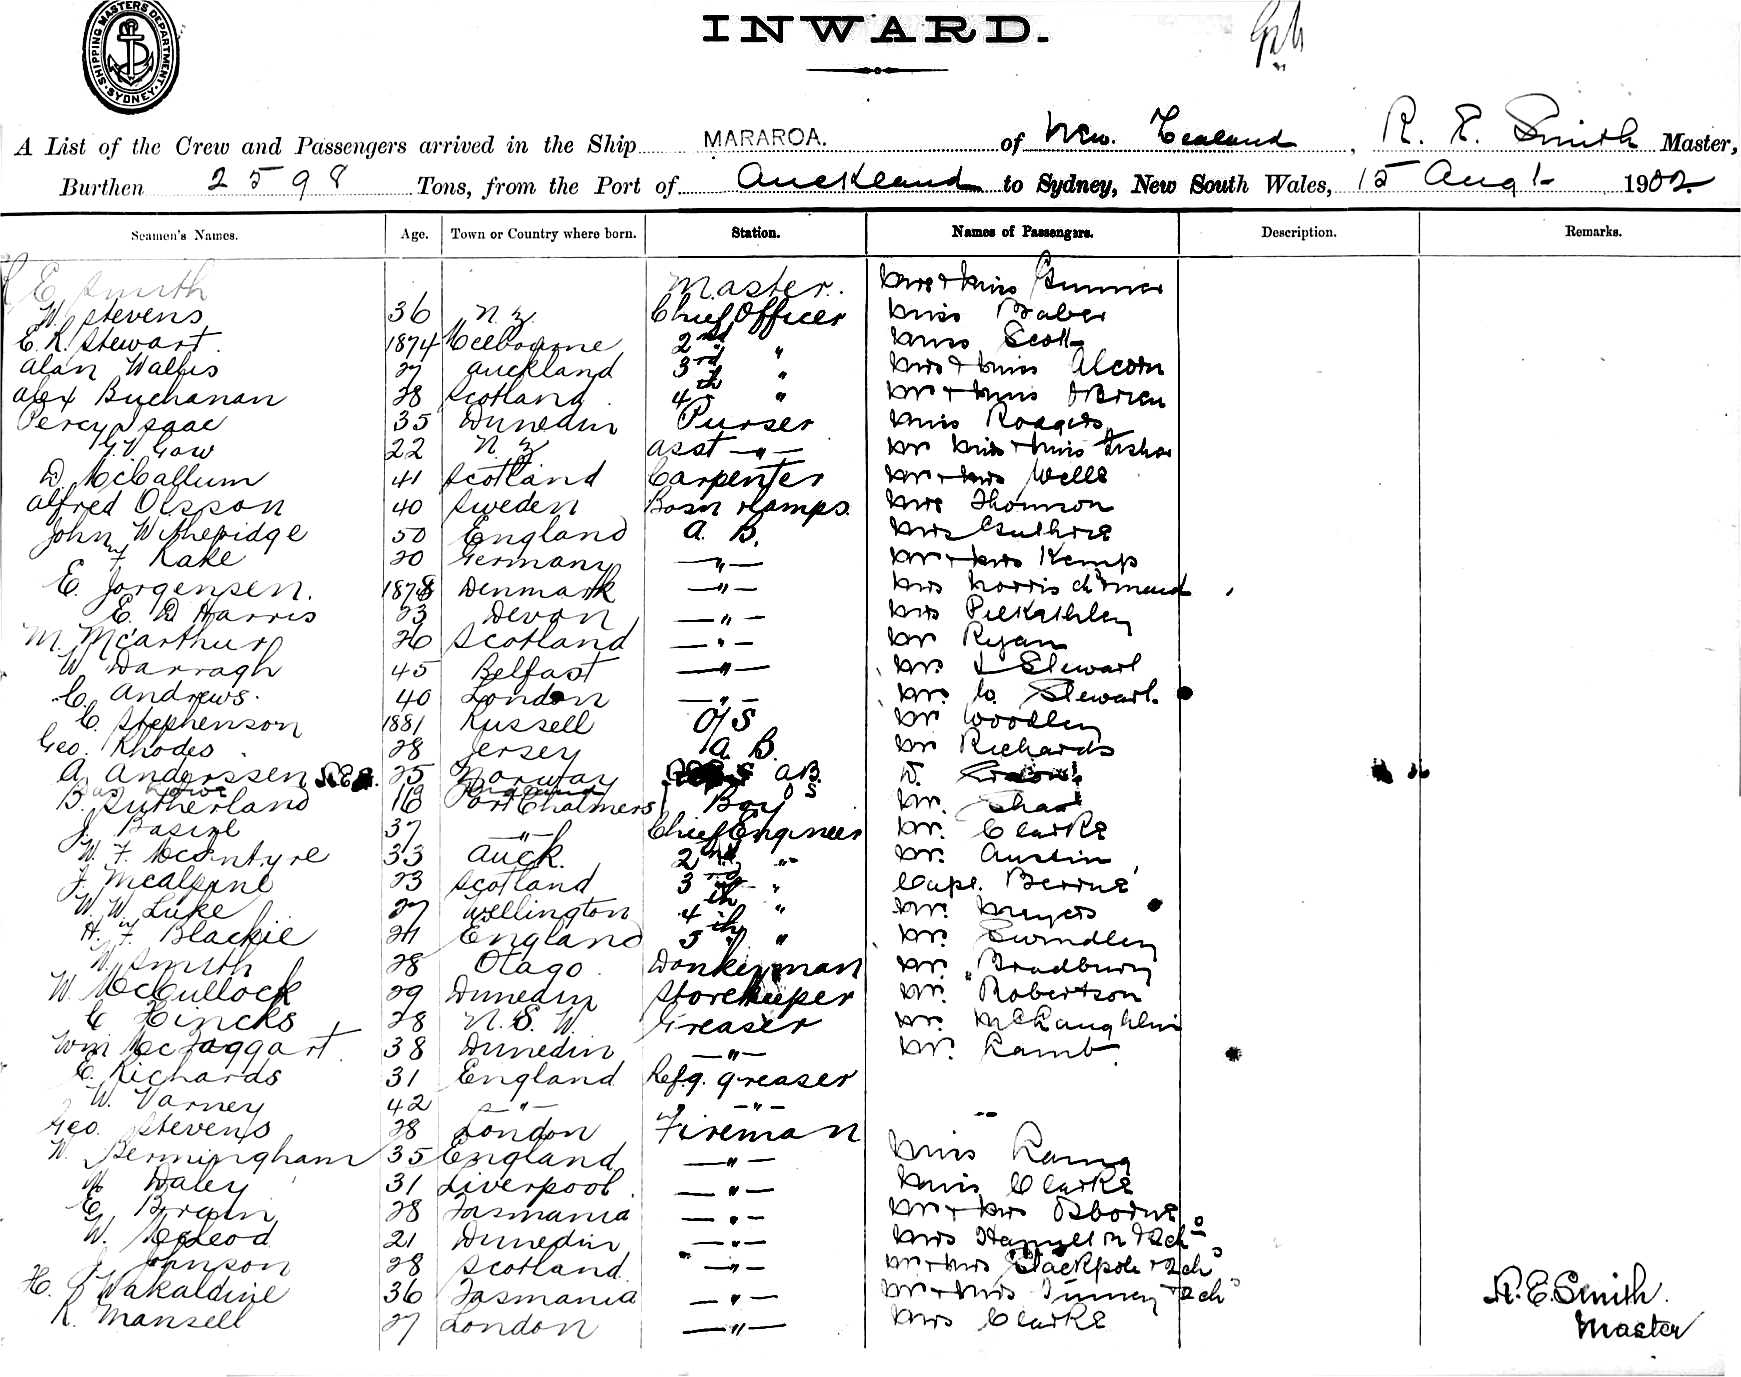 SHIPPING MASTERS DEPARTMENT SYDNEY
INWARD.
A List of the Crew and Passengers arrived in the Ship MARAROA. of New Zealand, R. E. Smith Master,
Burthen 2598 Tons, from the Port of Auckland to Sydney, New South Wales, 15 Augt 1902
Seamen's Names. Age. Town or Country where born. Station. Names of Passengers. Description. Remarks.
R E Smith Master. Mrs & Miss
W. Stevens 36 N.Z. Chief Officer Miss Baber
E. R. Stewart. 1874 Melbourne 2nd " Miss Scott
Alan Wallis 27 Auckland 3rd " Mrs & Miss Alcorn
Alex Buchanan 28 Scotland 4th " Mr & Miss O'Brien
Percy Isaac 35 Dunedin Purser Miss Rodgers
G. V. Gow 22 N.Z. Asst " Mr Miss & Miss Fisher
D. McCallum 41 Scotland Carpenter Mr & Mrs Wells
Alfred Olsson 40 Sweden Bosn & Lamps. Mrs Thomson
John Witheridge 50 England A. B. Mrs Guthrie
F. Rake 20 Germany " Mr & Mrs Kemp
E. Jorgensen. 1878 Denmark " Mrs Norris ch & maid
E. D Harris 23 Devon " Mrs
M. McArthur 26 Scotland " Mr Ryan
W Darragh 45 Belfast " Mr. Stewart
C. Andrews. 40 London " Mr. C. Stewart.
C. Stephenson 1881 Russell O/S Mr Woodley
Geo. Rhodes 28 Jersey A. B. Mr Richards
A. Anderssen 25 Norway AB.
B. Sutherland 16 Port Chalmers Boy Mr.
J. 37 " Chief Engineer Mr. Clarke
W. F. McIntyre 33 Auck. 2nd " Mr. Austin
J. McAlpine 23 Scotland 3rd " Capt.
W. W. Luke 27 Wellington 4th " Mr. Meyers
H. F. Blackie 24 England 5th " Mr. Swindley
W. Smith 28 Otago. Donkeyman Mr. Bradbury
W. McCullock 29 Dunedin Storekeeper Mr. Robertson
C Hincks 28 N. S. W. Greaser Mr. McLaughlin
Wm McTaggart. 38 Dunedin " Mr. Lamb
E. Richards 31 England Refg. greaser
W. Varney 42 " "
Geo. Stevens 28 London Fireman
W. Bermingham 35 England " Miss
M Daley 31 Liverpool. " Miss Clarke
E. 28 Tasmania " Mr & Mrs Osborne
W. McLeod 21 Dunedin " Mrs & 2ch
J Johnson 28 Scotland. " Mr & Mrs Stackpole & 2ch
H. J Wakaldine 36 Tasmania " Mr & Mrs & 2ch
R. Mansell 27 London " Mrs Clarke
R. E. Smith.
Master